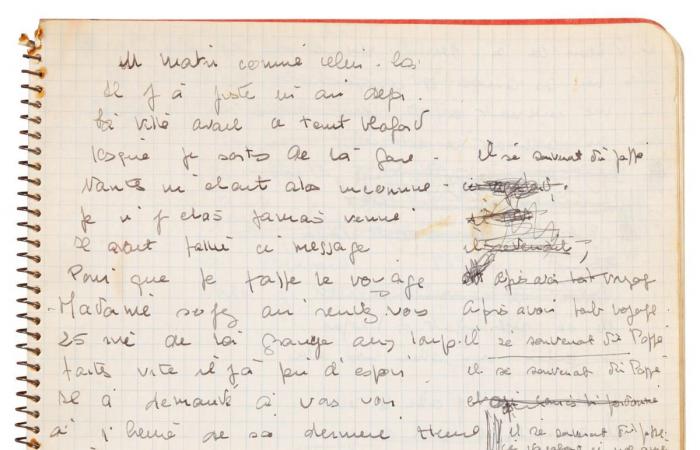 Un matin comme celui-là
Il y a juste un an deja.
La ville avait ce teint blafard
lorsque je sortis de la gare -
Nantes m'etait alors inconnue -
Je n'y etais jamais venue
Il avait fallu ce message
Pour que je fasse le voyage
- Madame soyez au rendez vous
25 rue de la grange aux loup.
faites vite il y a peu d'espoir
Il a demandé à vous voir
a l'heure de sa derniere heure
il se souvenait du passé
il revenait,
après avoir tant voyagé
après avoir tant voyagé.
il se souvenait du Passé
il se souvenait du Passé
il se souvenait du passé